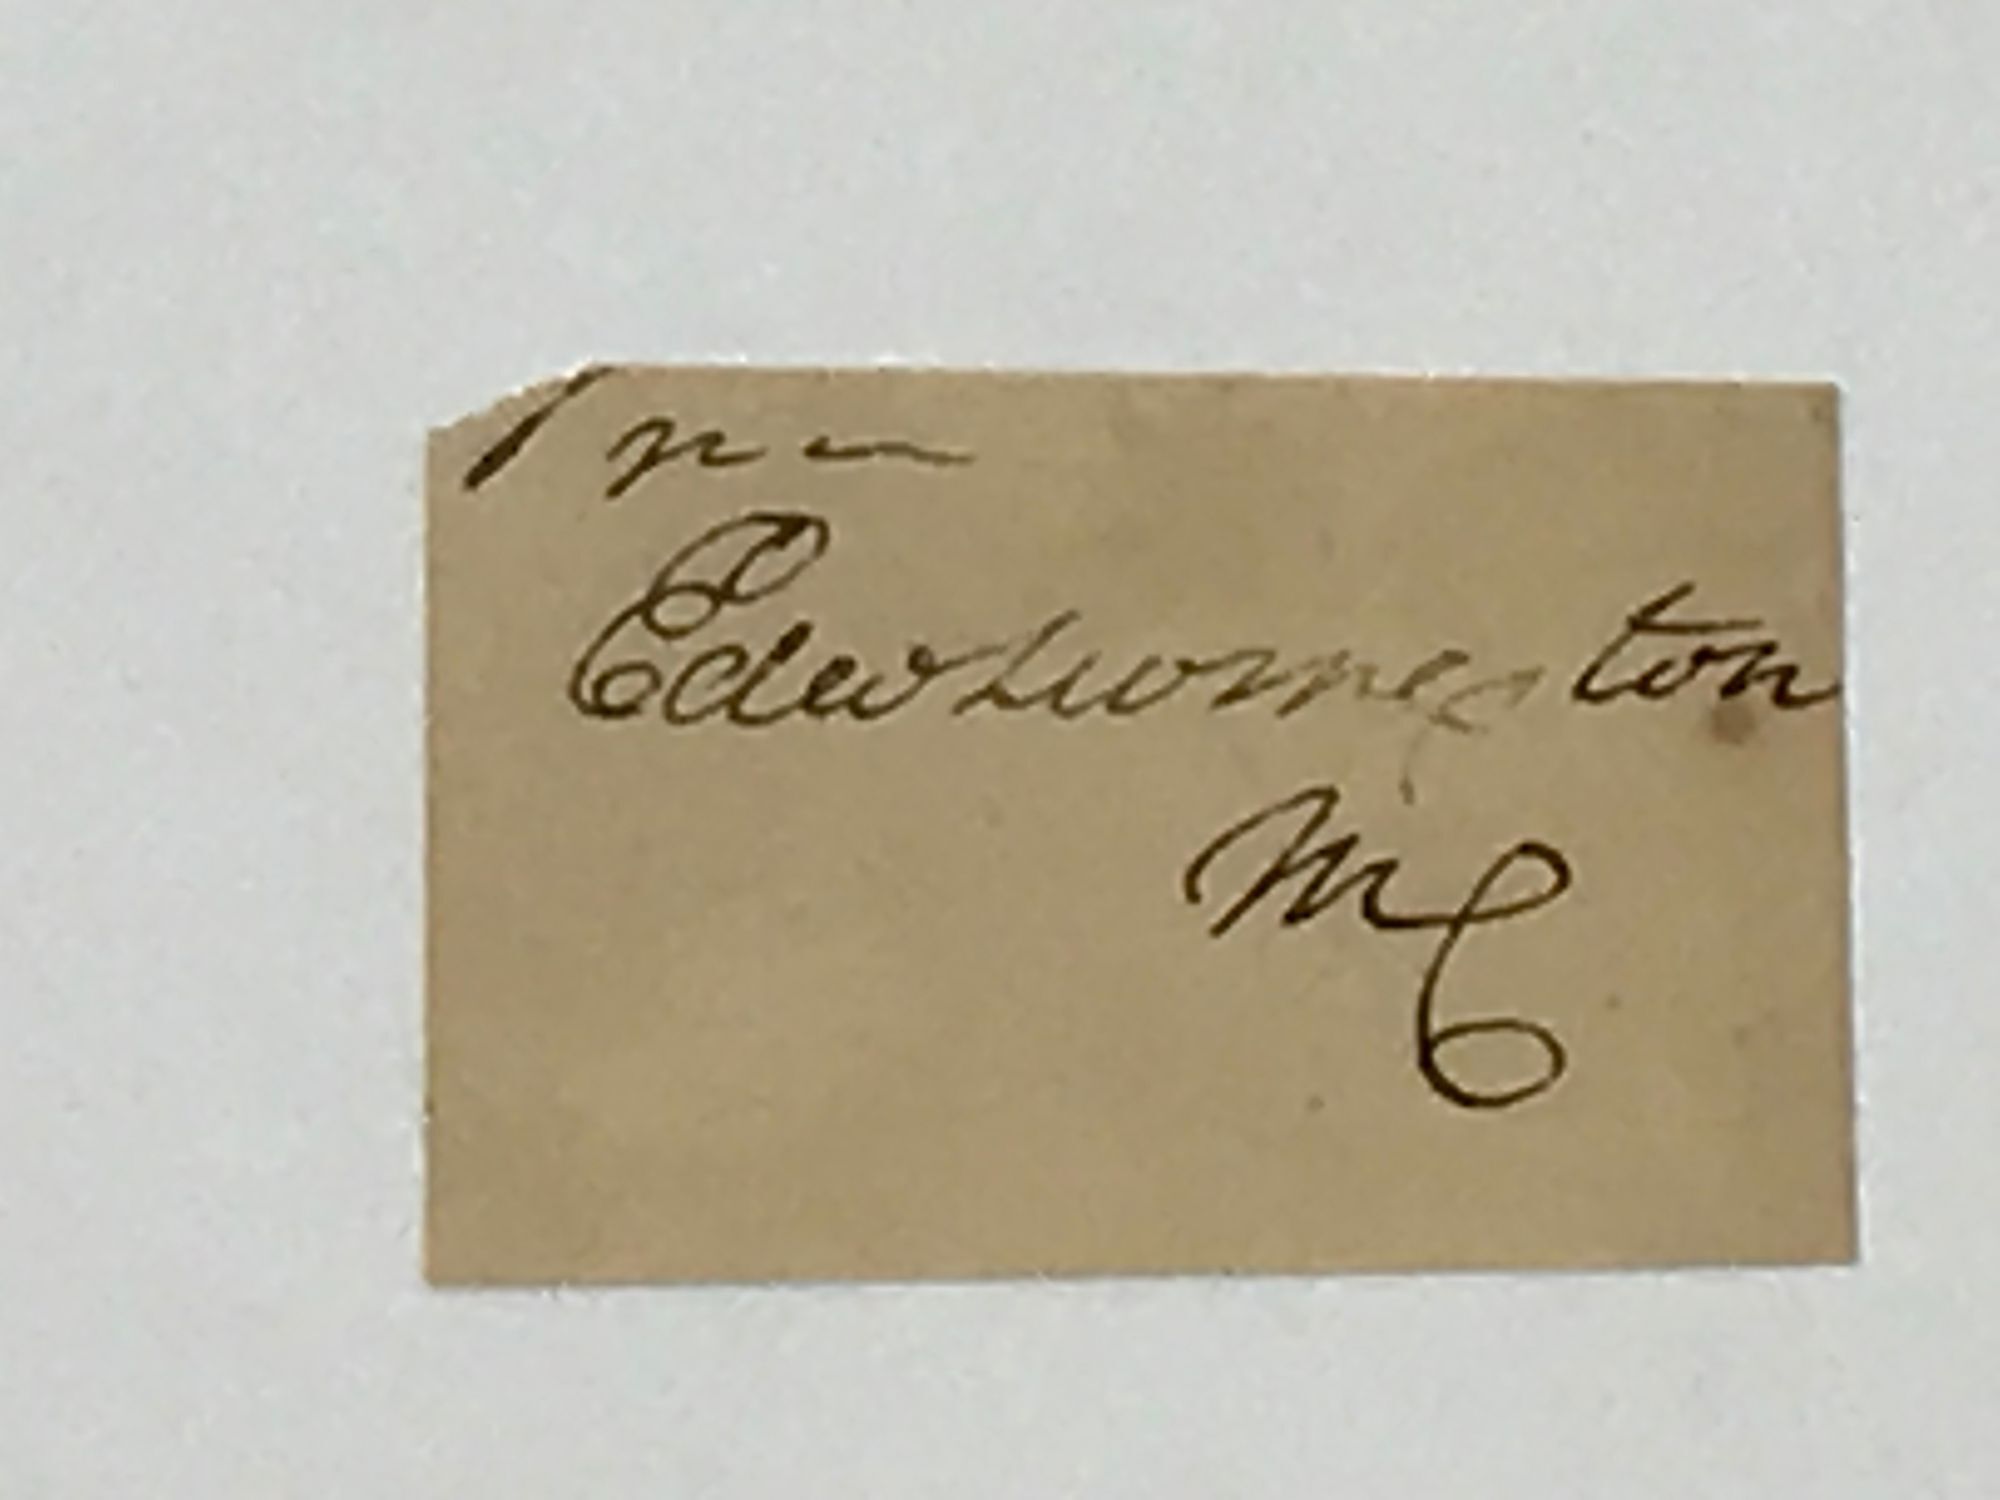 Edw Livingston
MC